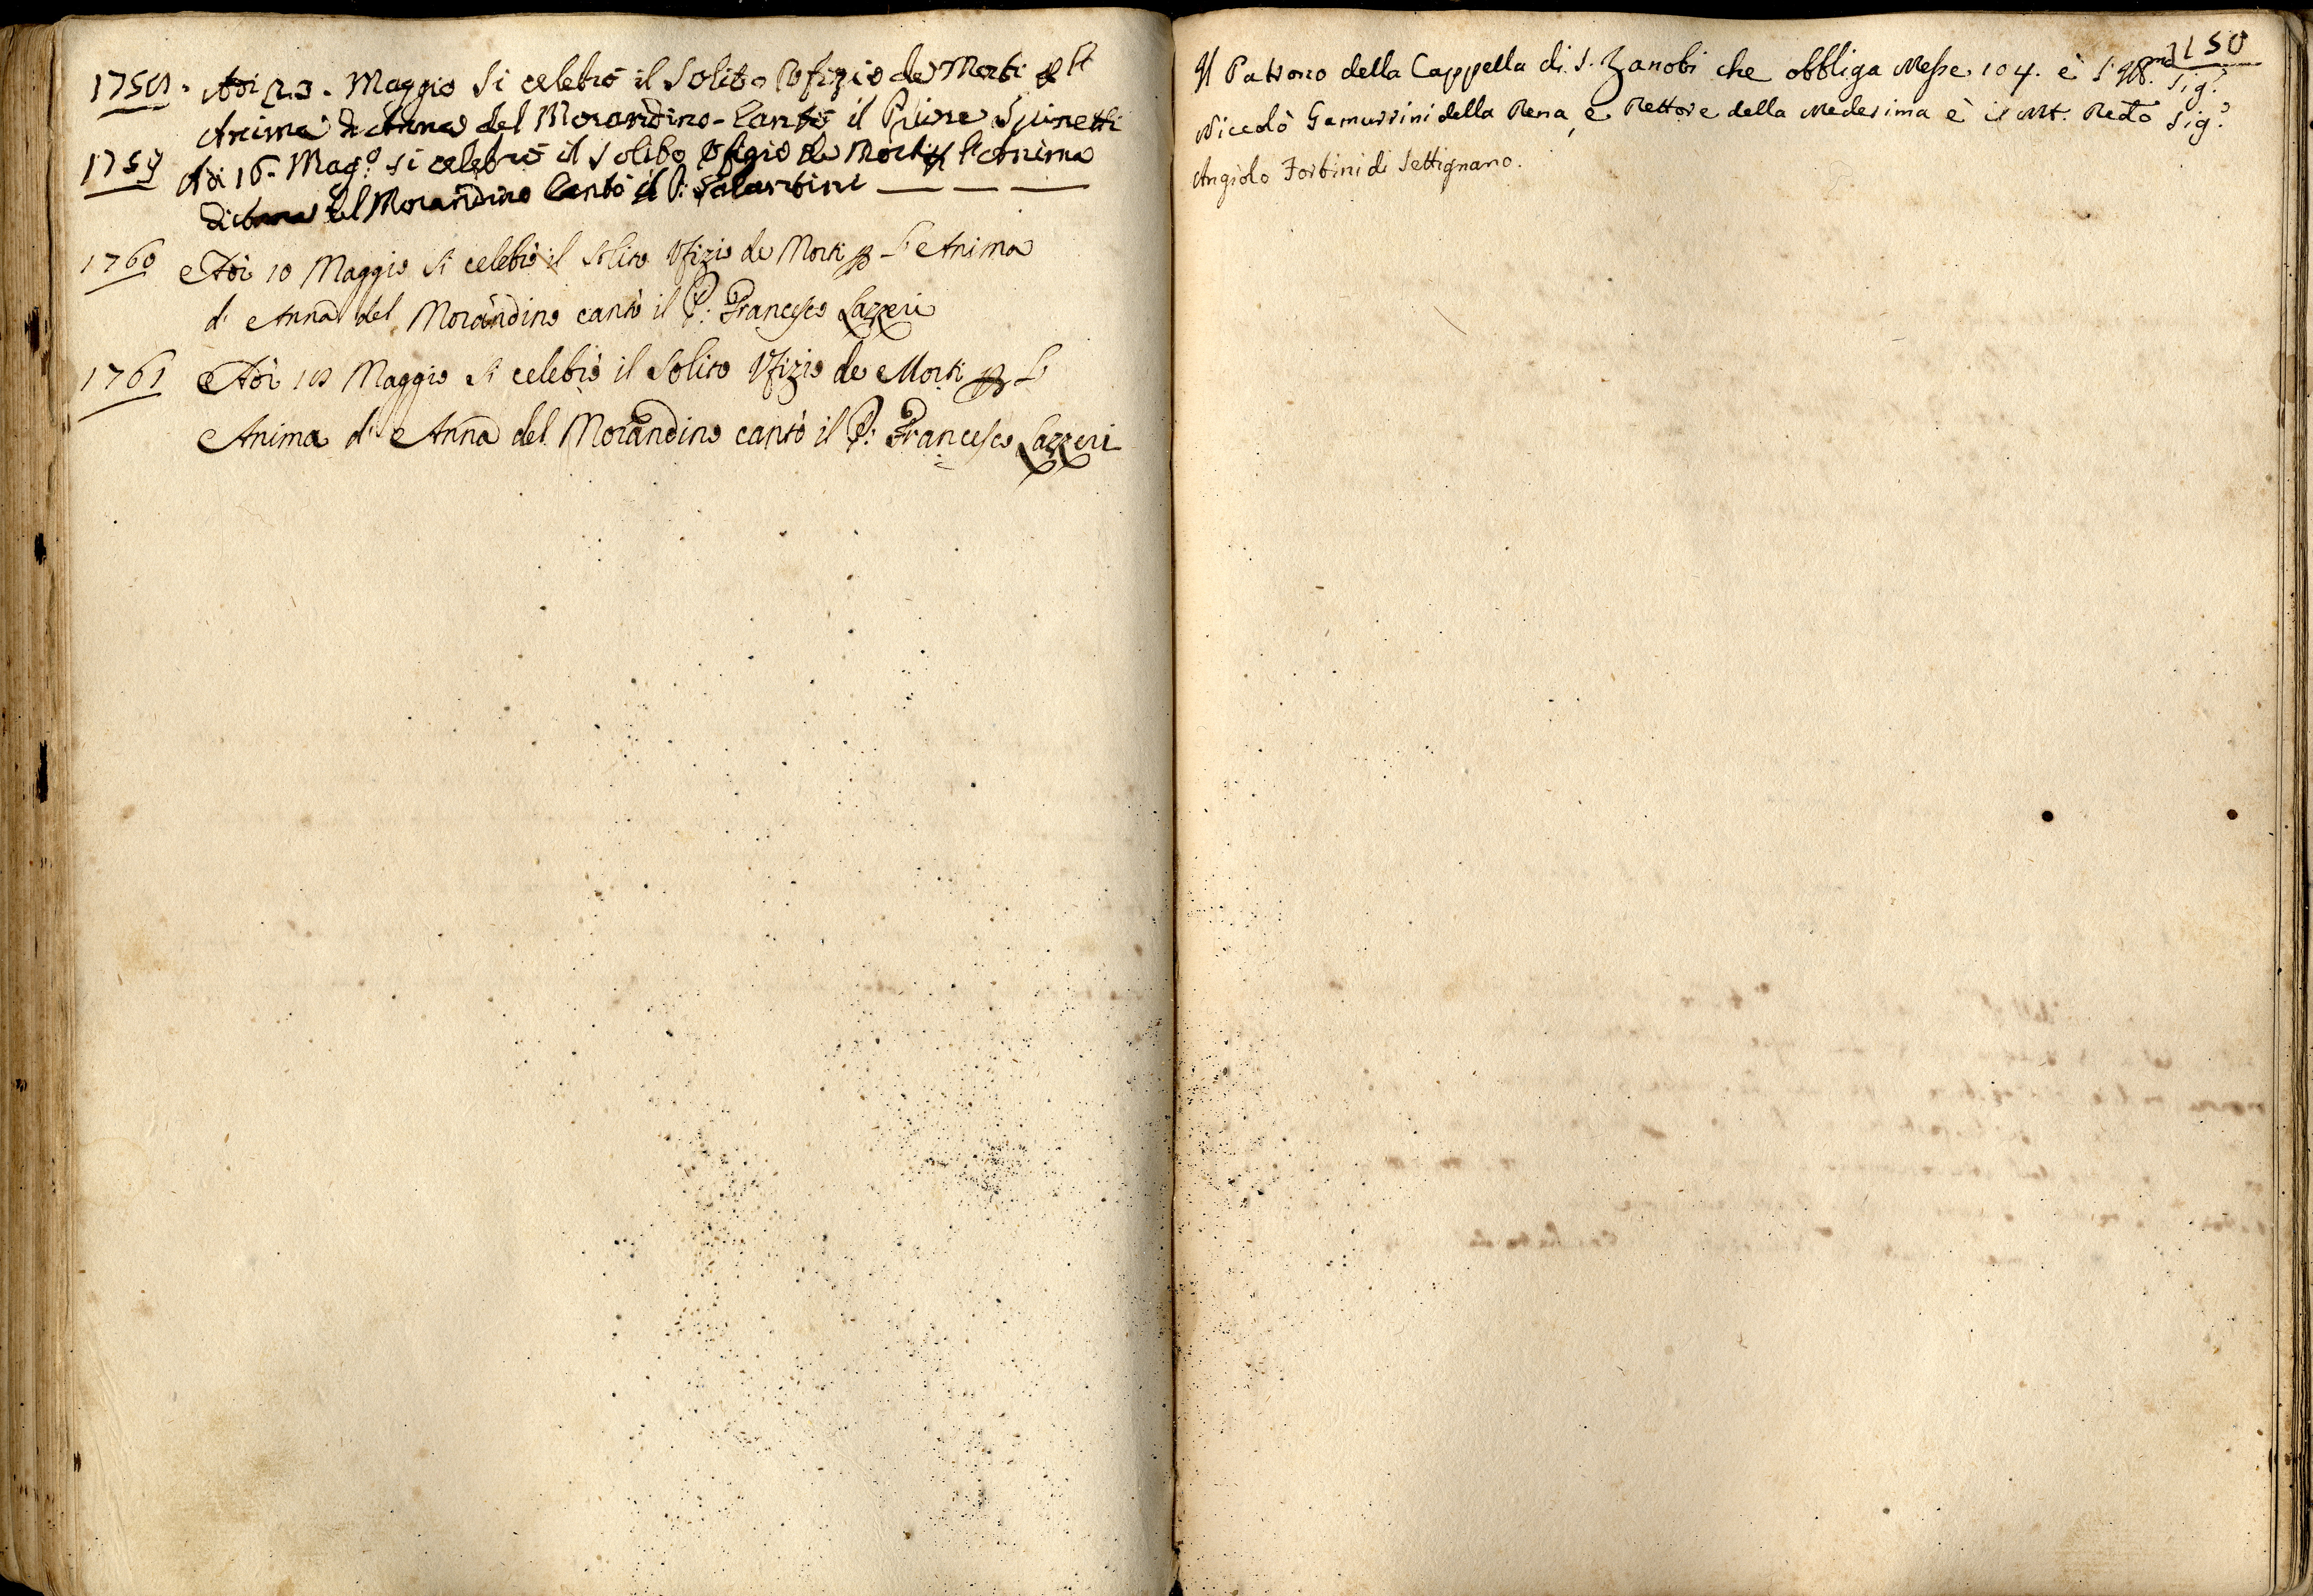 1758. Adi 23. Maggio Si celebrò il Solito Ufizio de Morti p l'
Anima di Anna del Morandino - Cantò il Priore Spinetti
1759 Adi 16. Mag.º si celebrò il Solito Ufizio de Morti p l'Anima
di Anna del Morandino Cantò il P: Salantini
1760 Adì 10 Maggio si celebrò il solito Ufizio de Morti p l'Anima
di Anna del Morandino cantò il P: Francesco Lazzeri
1761 Adì 10 Maggio si celebrò il Solito Ufizio de Morti p l'
Anima di Anna del Morandino cantò il P: Francesco Lazzeri
150
Il Patrono della Cappella di S. Zanobi che obbliga Messe 104. è l' Sig.re
Niccolò Gamurrini della Rena, e Rettore della Medesima è il Mt. Redo Sig.re
Angiolo Fortini di Settignano.